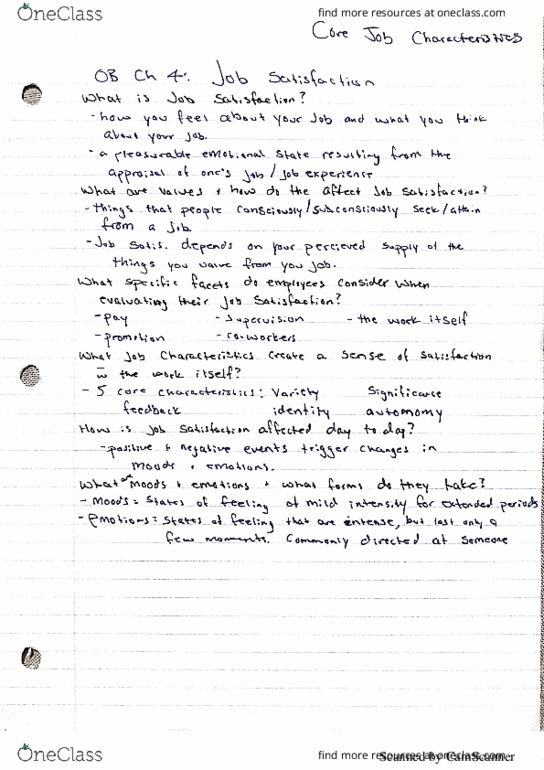 OneClass
find more resources at oneclass.com
Core Job Characteristics
OB Ch 4: Job Satisfaction
What is Job Satisfaction?
- how you feel about your job and what you think
about your job.
- a pleasurable emotional state resulting from the
appraisal of one's job / job experience
What are values + how do the affect Job satisfaction?
- things that people consciously/subconsciously seek/attain
from a job
- Job satis. depends on your percieved supply of the
things you value from you job.
What specific facets do employees consider when
evaluating their job satisfaction?
- pay - supervision - the work itself
- promotion - co-workers
What Job Characteristics create a sense of satisfaction
w the work itself?
- 5 core characteristics: Variety Significance
feedback identity autonomy
How is job satisfaction affected day to day?
- positive + negative events trigger changes in
moods + emotions.
What are moods + emotions + what forms do they take?
- Moods = States of feeling of mild intensity for extended periods
- Emotions = States of feeling that are intense, but last only a
few moments. Commonly directed at someone
OneClass
find more resources at oneclass.com
Scanned by CamScanner